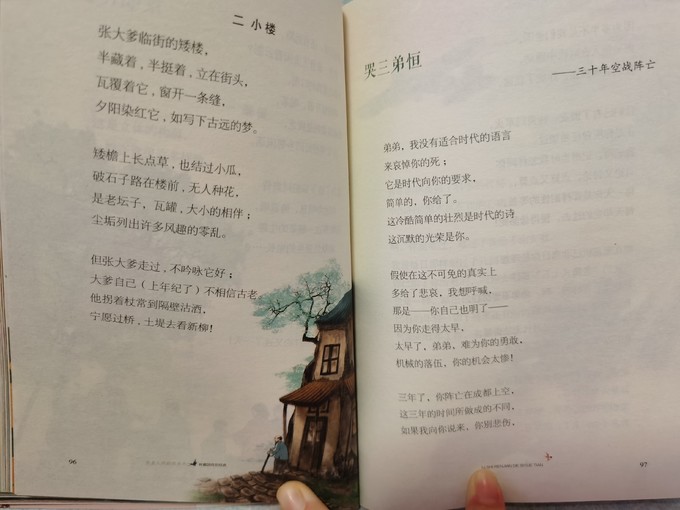 二 小楼
张大爹临街的矮楼，
半藏着，半挺着，立在街头，
瓦覆着它，窗开一条缝，
夕阳染红它，如写下古远的梦。
矮檐上长点草，也结过小瓜，
破石子路在楼前，无人种花，
是老坛子，瓦罐，大小的相伴；
尘垢列出许多风趣的零乱。
但张大爹走过，不吟咏它好；
大爹自己（上年纪了）不相信古老
他拐着杖常到隔壁沽酒，
宁愿过桥，土堤去看新柳！
96
哭三弟恒
——三十年空战阵亡
弟弟，我没有适合时代的语言
来哀悼你的死；
它是时代向你的要求，
简单的，你给了。
这冷酷简单的壮烈是时代的诗
这沉默的光荣是你。
假使在这不可免的真实上
多给了悲哀，我想呼喊，
那是——你自己也明了——
因为你走得太早，
太早了，弟弟，难为你的勇敢，
机械的落伍，你的机会太惨！
三年了，你阵亡在成都上空，
这三年的时间所做成的不同，
如果我向你说来，你别悲伤，
97